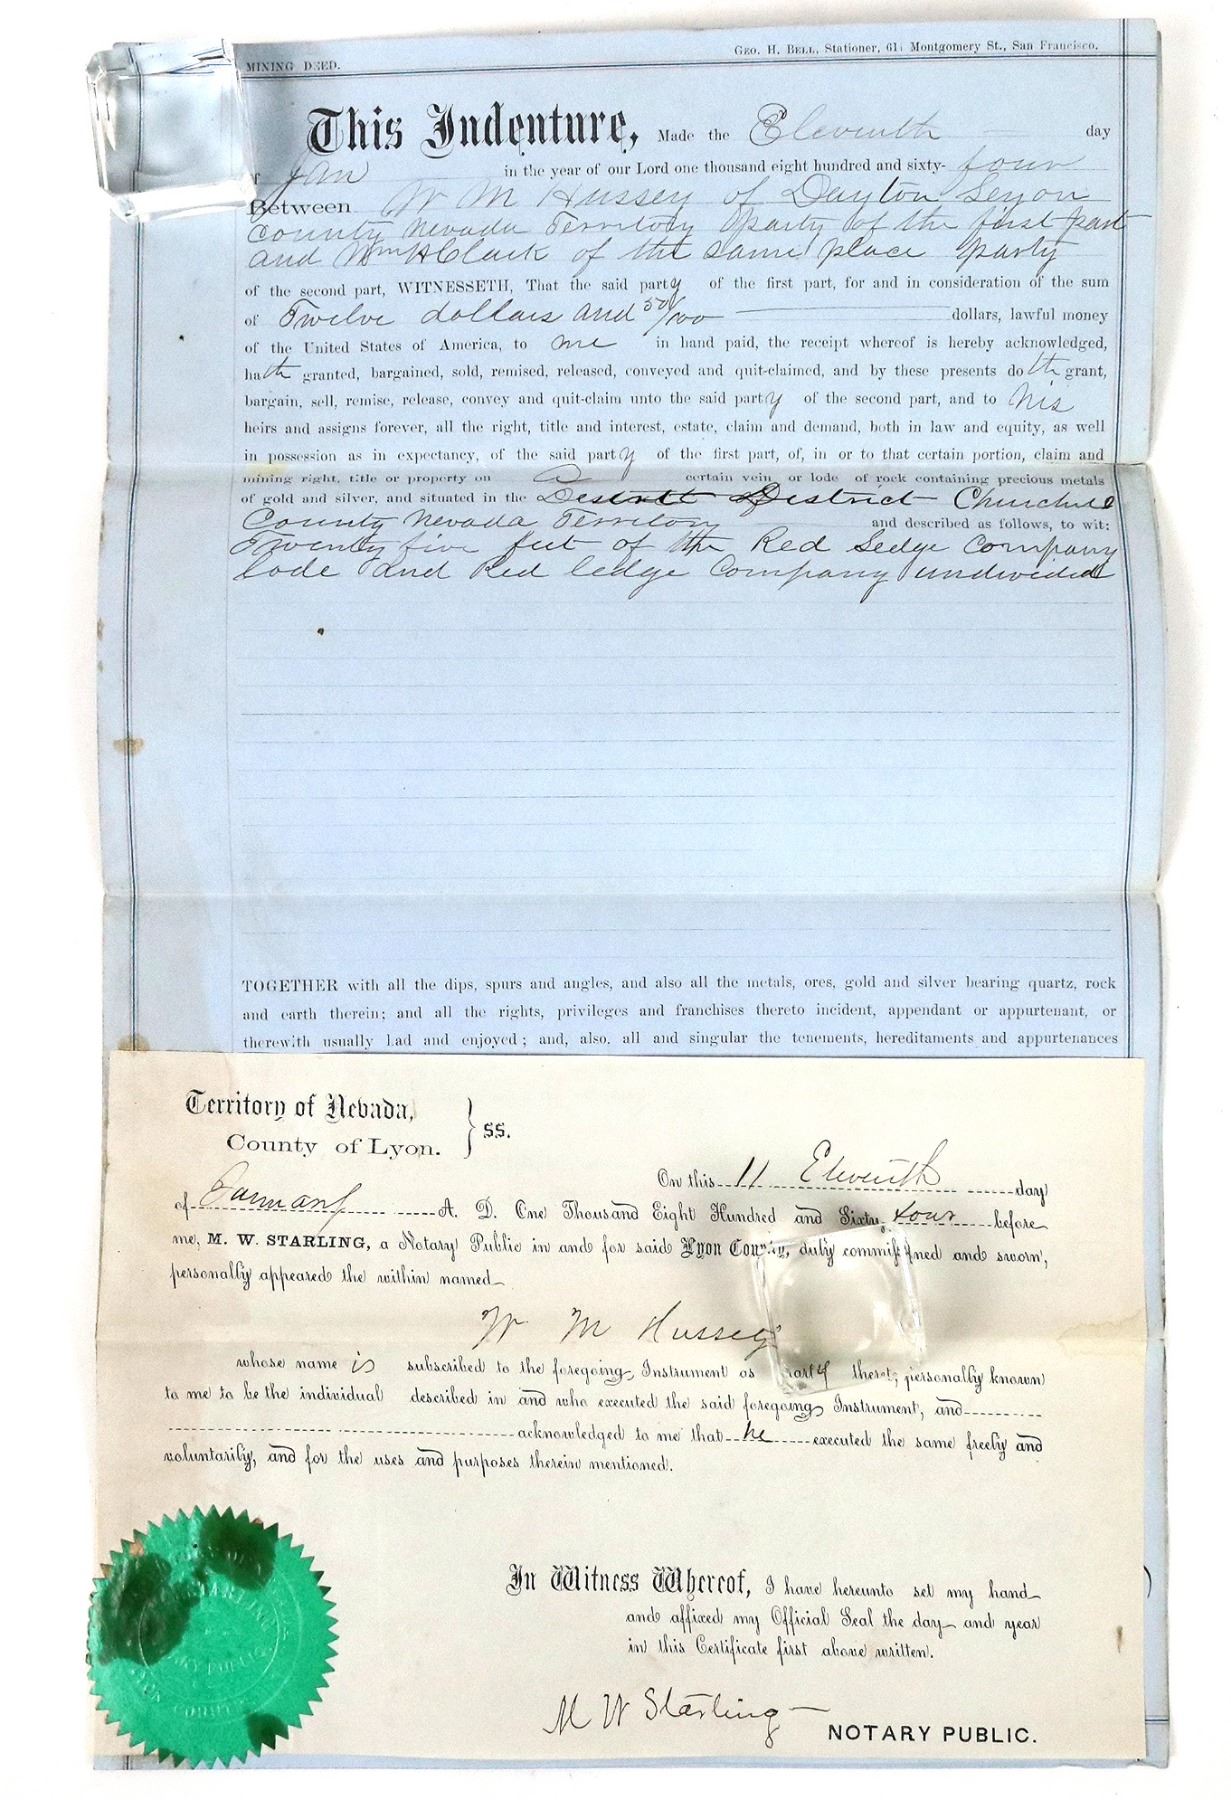 GEO. H. BELL, Stationer, 611 Montgomery St., San Francisco.
MINING DEED.
This Indenture, Made the Eleventh day
of Jan in the year of our Lord one thousand eight hundred and sixty-four
Between W M Hussey of Dayton Lyon
county Nevada Territory party of the first part
and Wm H Clark of the same place party
of the second part, WITNESSETH, That the said party of the first part, for and in consideration of the sum
of Twelve dollars and 50/100 dollars, lawful money
of the United States of America, to me in hand paid, the receipt whereof is hereby acknowledged,
hath granted, bargained, sold, remised, released, conveyed and quit-claimed, and by these presents doth grant,
bargain, sell, remise, release, convey and quit-claim unto the said party of the second part, and to his
heirs and assigns forever, all the right, title and interest, estate, claim and demand, both in law and equity, as well
in possession as in expectancy, of the said party of the first part, of, in or to that certain portion, claim and
mining right, title or property on a certain vein or lode of rock containing precious metals
of gold and silver, and situated in the District Churchill
County Nevada Territory and described as follows, to wit:
Twenty five feet of the Red Ledge Company
lode and Red ledge Company undivided
TOGETHER with all the dips, spurs and angles, and also all the metals, ores, gold and silver bearing quartz, rock
and earth therein; and all the rights, privileges and franchises thereto incident, appendant or appurtenant, or
therewith usually had and enjoyed; and, also, all and singular the tenements, hereditaments and appurtenances
Territory of Nevada,
County of Lyon. } SS.
On this 11 Eleventh day
of January A. D. One Thousand Eight Hundred and Sixty four before
me, M. W. STARLING, a Notary Public in and for said Lyon County, duly commissioned and sworn,
personally appeared the within named
W M Hussey
whose name is subscribed to the foregoing Instrument as party thereto, personally known
to me to be the individual described in and who executed the said foregoing Instrument, and
acknowledged to me that he executed the same freely and
voluntarily, and for the uses and purposes therein mentioned.
In Witness Whereof, I have hereunto set my hand
and affixed my Official Seal the day and year
in this Certificate first above written.
M W Starling
NOTARY PUBLIC.